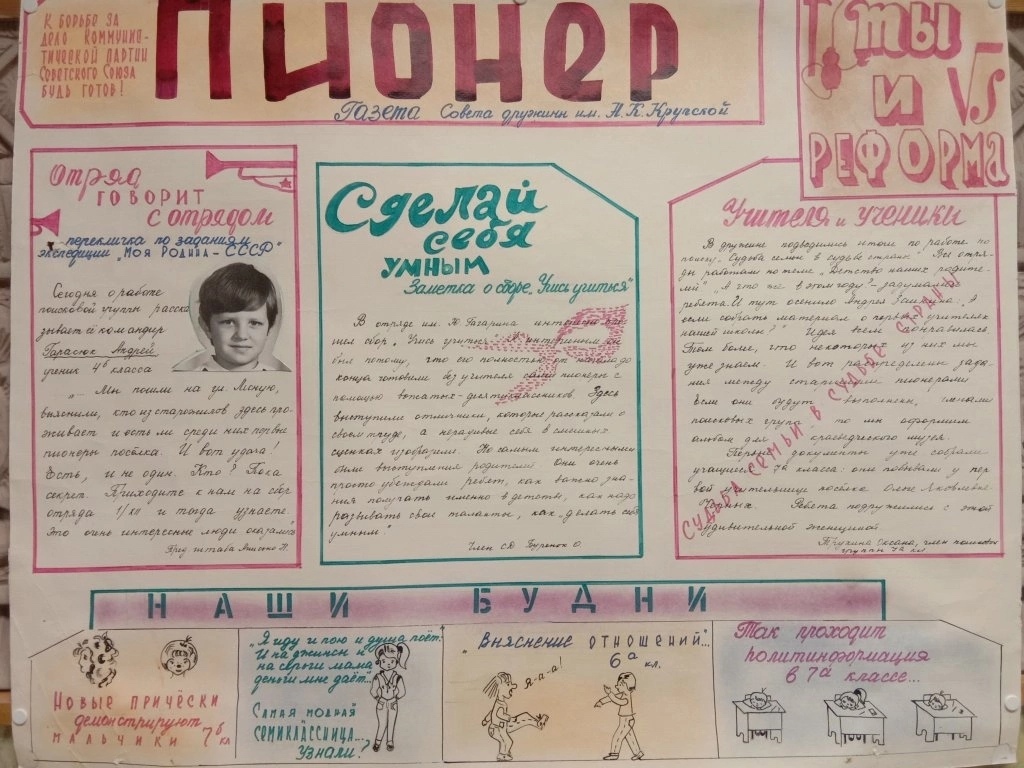 К БОРЬБЕ ЗА
ДЕЛО КОММУНИС-
ТИЧЕСКОЙ ПАРТИИ
СОВЕТСКОГО СОЮЗА
БУДЬ ГОТОВ!
Пионер
Газета Совета дружины им. Н.К. Крупской
ТЫ
И
РЕФОРМА
Отряд
ГОВОРИТ
с отрядом
перекличка по заданиям
экспедиции „Моя Родина - СССР"
Сегодня о работе
поисковой группы расска
зывает её командир
Тарасюк Андрей
ученик 4б класса
„- Мы пошли на ул. Лесную,
выяснили, кто из старожилов здесь про-
живает и есть ли среди них первые
пионеры посёлка. И вот удача!
Есть, и не один. Кто? Пока
секрет. Приходите к нам на сбор
отряда и тогда узнаете.
Это очень интересные люди оказались"
Пред. штаба
Сделай
себя
УМНЫМ
Заметка о сборе „Учись учиться"
В отряде им. Ю. Гагарина интересно про-
шел сбор „Учись учиться". Интересным он
был потому, что его полностью от начала до
конца готовили без учителя сами пионеры с
помощью вожатых - девятиклассников. Здесь
выступили отличники, которые рассказали о
своем труде, а нерадивые себя в смешных
сценках изобразили. Но самым интересным
были выступления родителей. Они очень
просто убеждали ребят, как важно зна-
ния получать именно в детстве, как надо
развивать свои таланты, как „делать себя
умным".
Член СД Буренок О.
Учителя и ученики
В дружине подводились итоги по работе по
поиску „Судьба семьи в судьбе страны". Все отря-
ды работали по теме „Детство наших родите-
лей". „А что же в этом году?" - задумались
ребята. И тут осенило Андрея „А
если собрать материал о первых учителях
нашей школы?" Идея всем понравилась.
Тем более, что некоторых из них мы
уже знаем. И вот распределены зада-
ния между старшими пионерами
Если они будут выполнены, членами
поисковых групп, то мы оформим
альбом для краеведческого музея.
Первые документы уже собрали
учащиеся 7а класса: они побывали у пер-
вой учительницы посёлка Ольги Яковлевны
Ребята подружились с этой
удивительной женщиной.
Оксана, член поисковой
группы 7а кл
СУДЬБА СЕМЬИ - В СУДЬБЕ СТРАНЫ
НАШИ БУДНИ
НОВЫЕ ПРИЧЁСКИ
демонстрируют
МАЛЬЧИКИ 7б кл
„Я иду и пою и душа поёт.
И на джинсы и
на серьги мама
деньги мне даёт..."
САМАЯ МОДНАЯ
СЕМИКЛАССНИЦА...
УЗНАЛИ?
„Выяснение ОТНОШЕНИЙ"...
6а кл.
Я-а-а!
Так проходит
политинформация
в 7а классе...